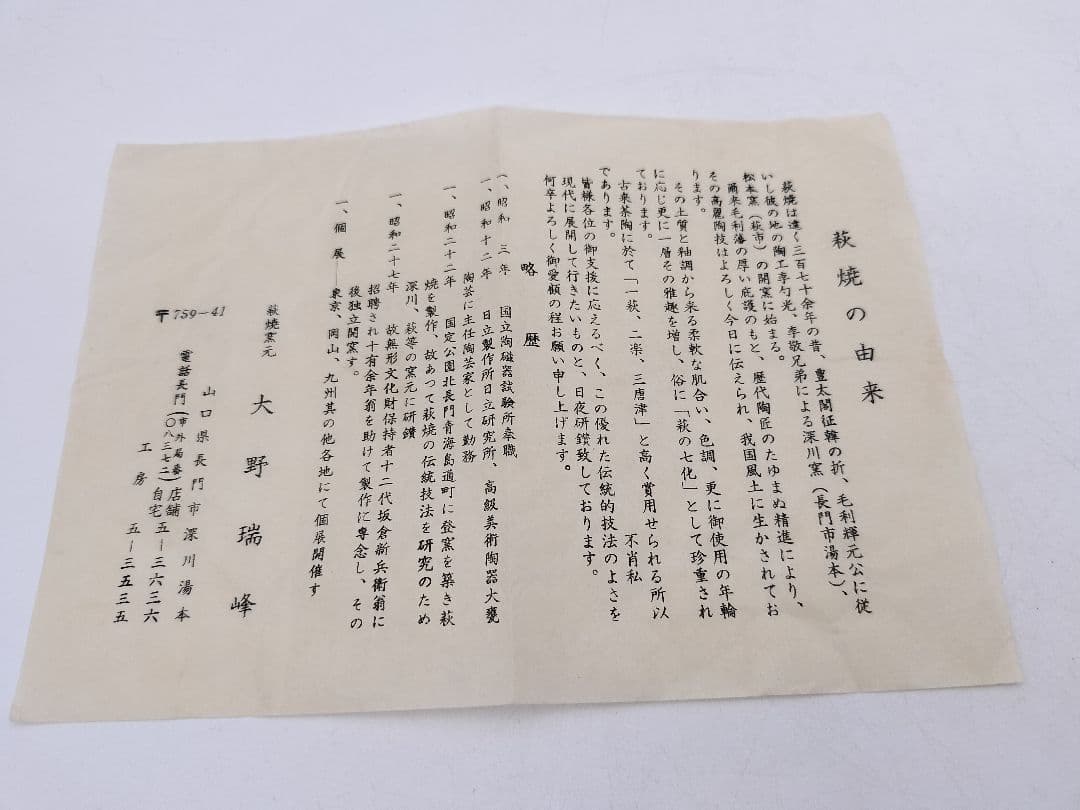 萩焼の由来
萩焼は遠く三百七十余年の昔、豊太閤征韓の折、毛利輝元公に従
いし彼の地の陶工李勺光、李敬兄弟による深川窯（長門市湯本）、
松本窯（萩市）の開窯に始まる。
爾来毛利藩の厚い庇護のもと、歴代陶匠のたゆまぬ精進により、
その高麗陶技はよろしく今日に伝えられ、我国風土に生かされてお
ります。
その土質と釉調から来る柔軟な肌合い、色調、更に御使用の年輪
に応じ更に一層その雅趣を増し、俗に「萩の七化」として珍重され
ております。
古来茶陶に於て「一萩、二楽、三唐津」と高く賞用せられる所以
であります。　不肖私
皆様各位の御支援に応えるべく、この優れた伝統的技法のよさを
現代に展開して行きたいものと、日夜研鑚致しております。
何卒よろしく御愛顧の程お願い申し上げます。
略歴
一、昭和　三年　国立陶磁器試験所奉職
一、昭和十二年　日立製作所日立研究所、高級美術陶器大甕
陶芸に主任陶芸家として勤務
一、昭和二十二年　国定公園北長門青海島通町に登窯を築き萩
焼を製作、故あつて萩焼の伝統技法を研究のため
深川、萩等の窯元に研鑚
一、昭和二十七年　故無形文化財保持者十二代坂倉新兵衛翁に
招聘され十有余年翁を助けて製作に専念し、その
後独立開窯す。
一、個展――東京、岡山、九州其の他各地にて個展開催す
萩焼窯元　大野瑞峰
〒759-41
山口県長門市深川湯本
電話長門（市外局番〇八三七二）店舗自宅五―三六三六
工房　五―三五三五